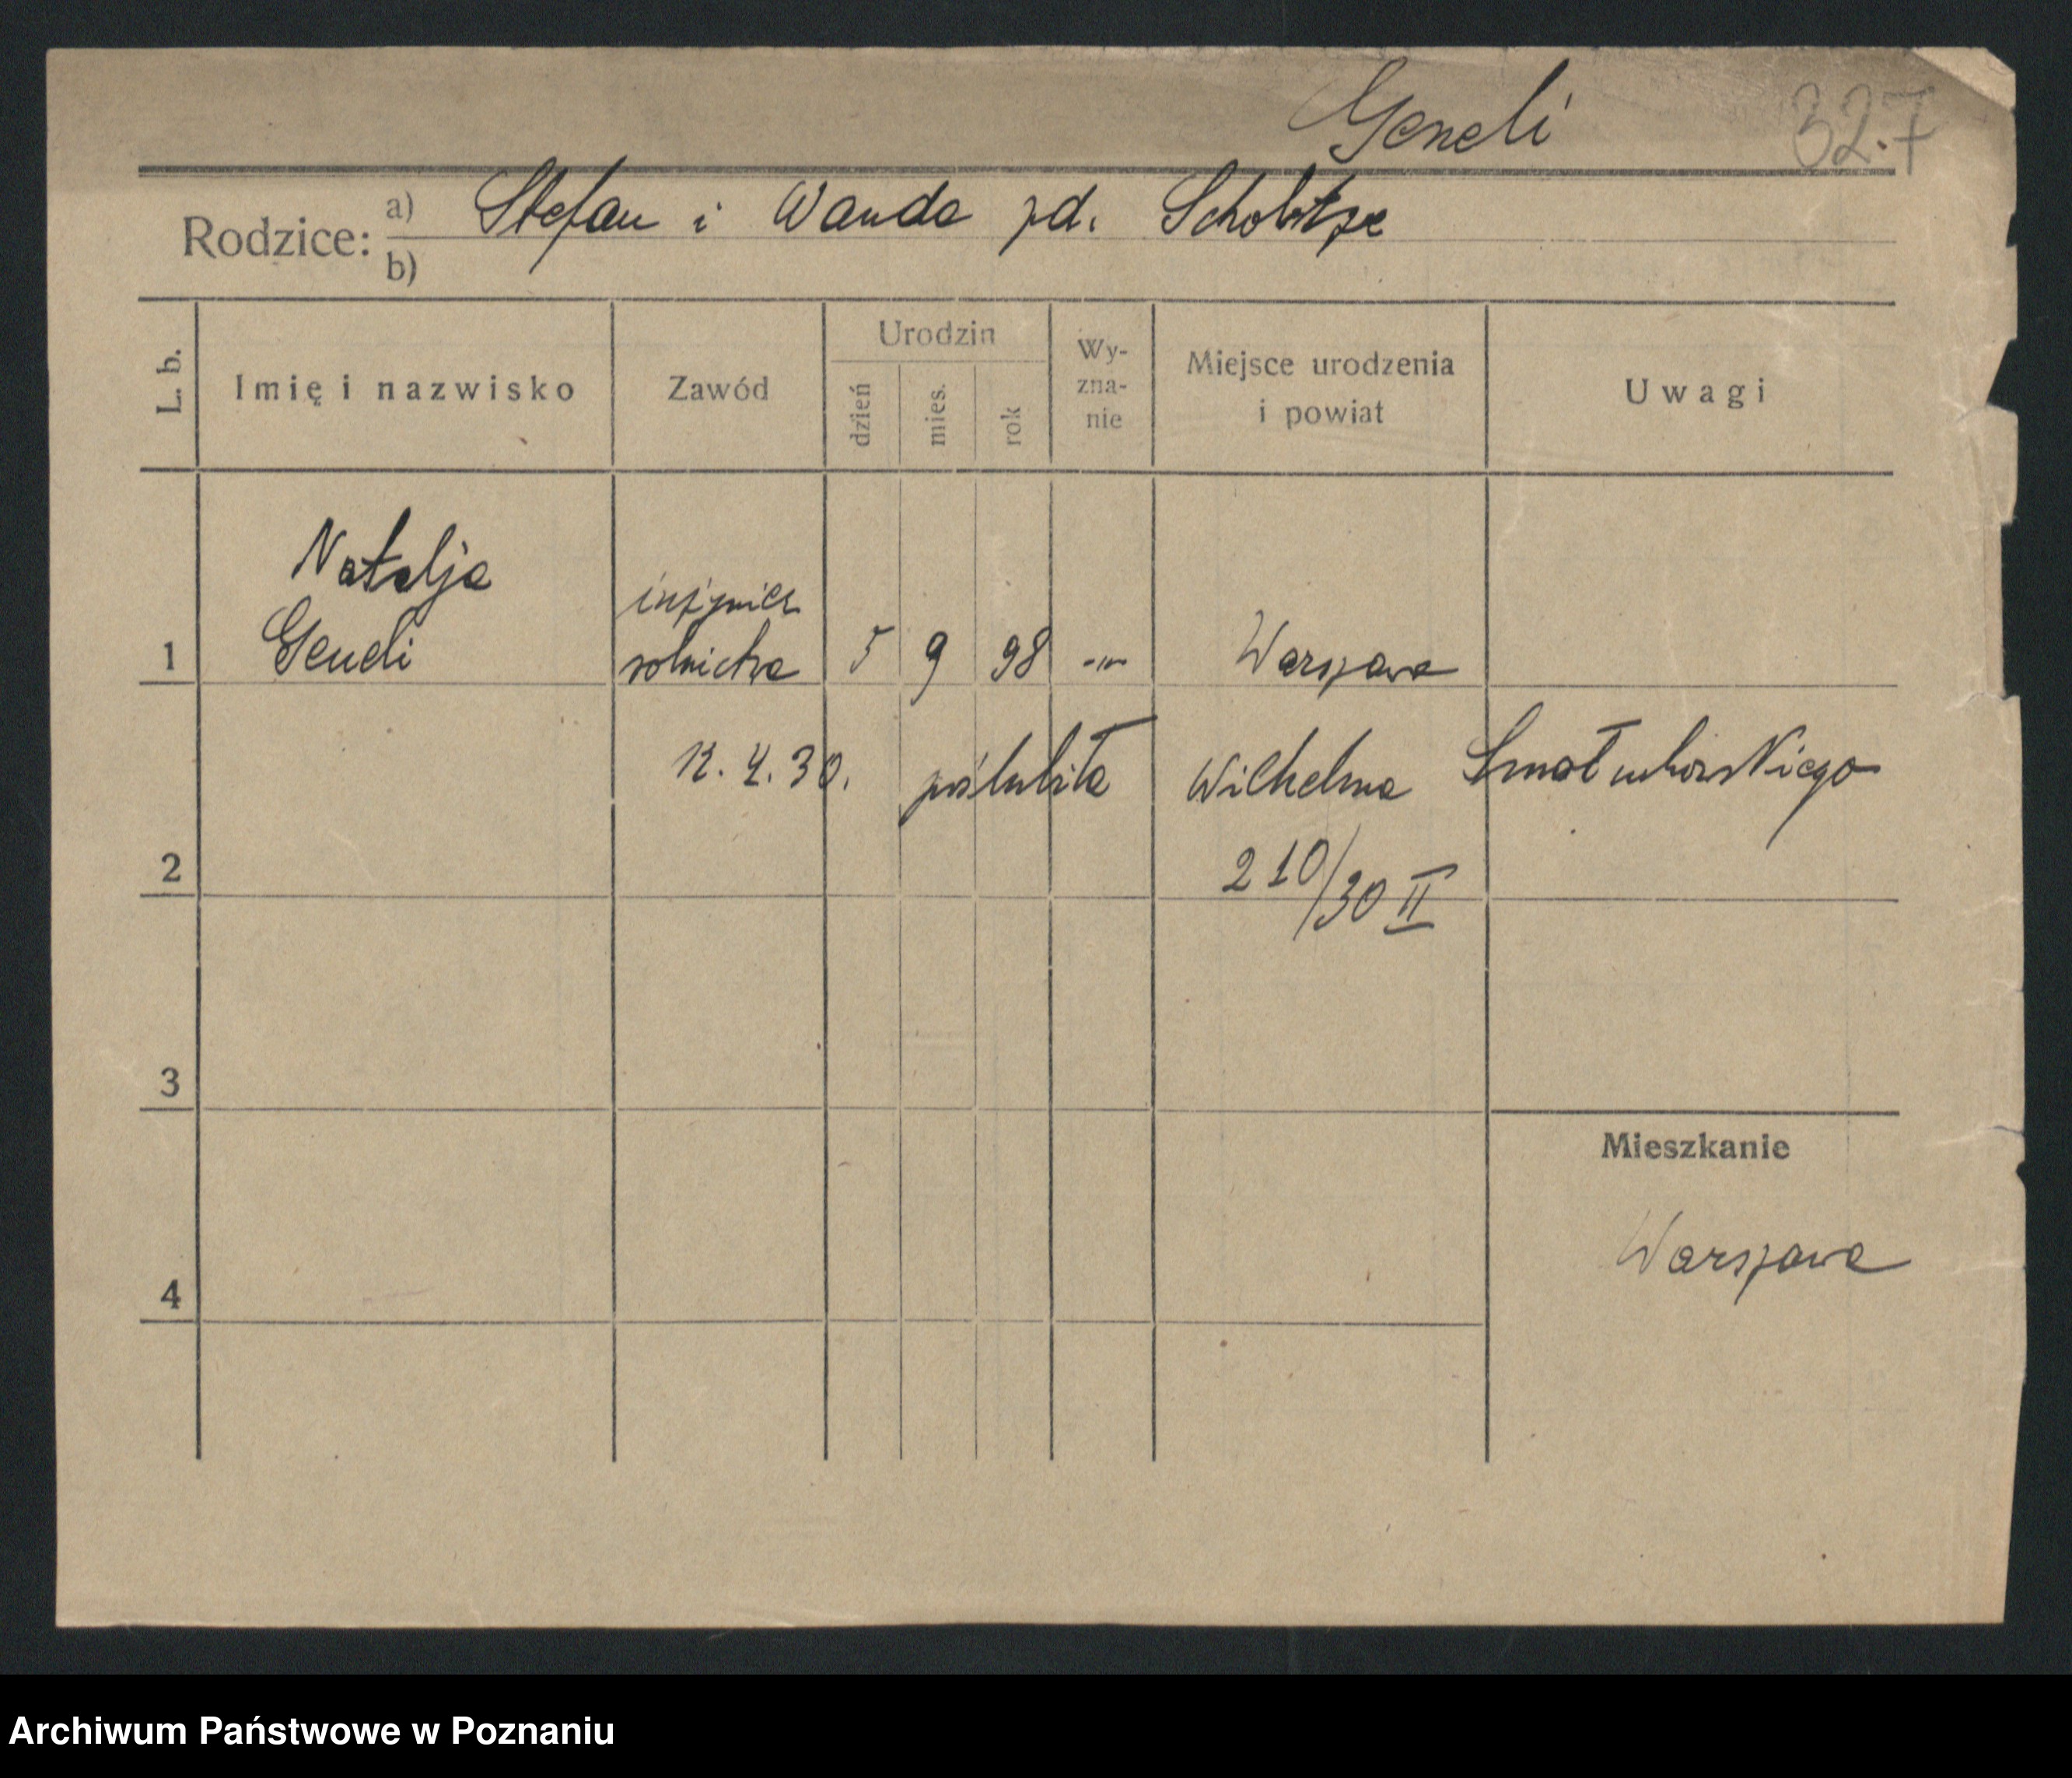 Geneli 32.7
Rodzice: a) Stefan i Wanda zd. Scholtze
b)
L. b. Imię i nazwisko Zawód Urodzin dzień mies. rok Wy-zna-nie Miejsce urodzenia i powiat Uwagi
Natalja inżynier
1 Geneli rolnictwa 5 9 98 -"- Warszawa
12. 4. 30. poślubiła Wilhelma
2 210/30 II
3
Mieszkanie
Warszawa
4
Archiwum Państwowe w Poznaniu